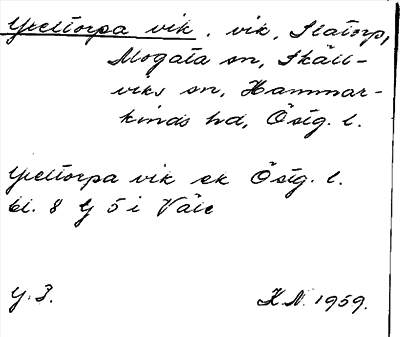 Yxeltorpa vik, vik, Slatorp,
Mogata sn, Skäll-
viks sn, Hammar-
kinds hd, Östg. l.
Yxeltorpa vik ek Östg. l.
bl. 8 G 5 i
Y. 3. K.N. 1959.